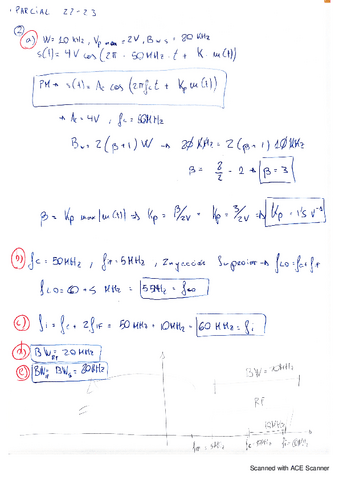 PARCIAL 22-23
②
a) W=10 kHz, Vp max=2V, Bws=80 kHz
s(t)=4V cos(2π·50MHz·t + K·m(t))
PM → s(t)=Ac cos(2πfct + Kp m(t))
→ Ac=4V, fc=50MHz
Bw=2(β+1)W → 80 kHz = 2(β+1) 10 kHz
β = 8/2 - 1 → β=3
β = Kp max|m(t)| → Kp = β/2V = Kp = 3/2V → Kp = 1'5 V⁻¹
b) fc=50MHz, fIF=5MHz, Inyección Superior → fLO=fc+fIF
MHz = 55MHz = fLO
c) fi = fc + 2fIF = 50MHz + 10MHz = 60 MHz = fi
d) BW RF = 20MHz
e)
BW=20MHz
RF
Scanned with ACE Scanner